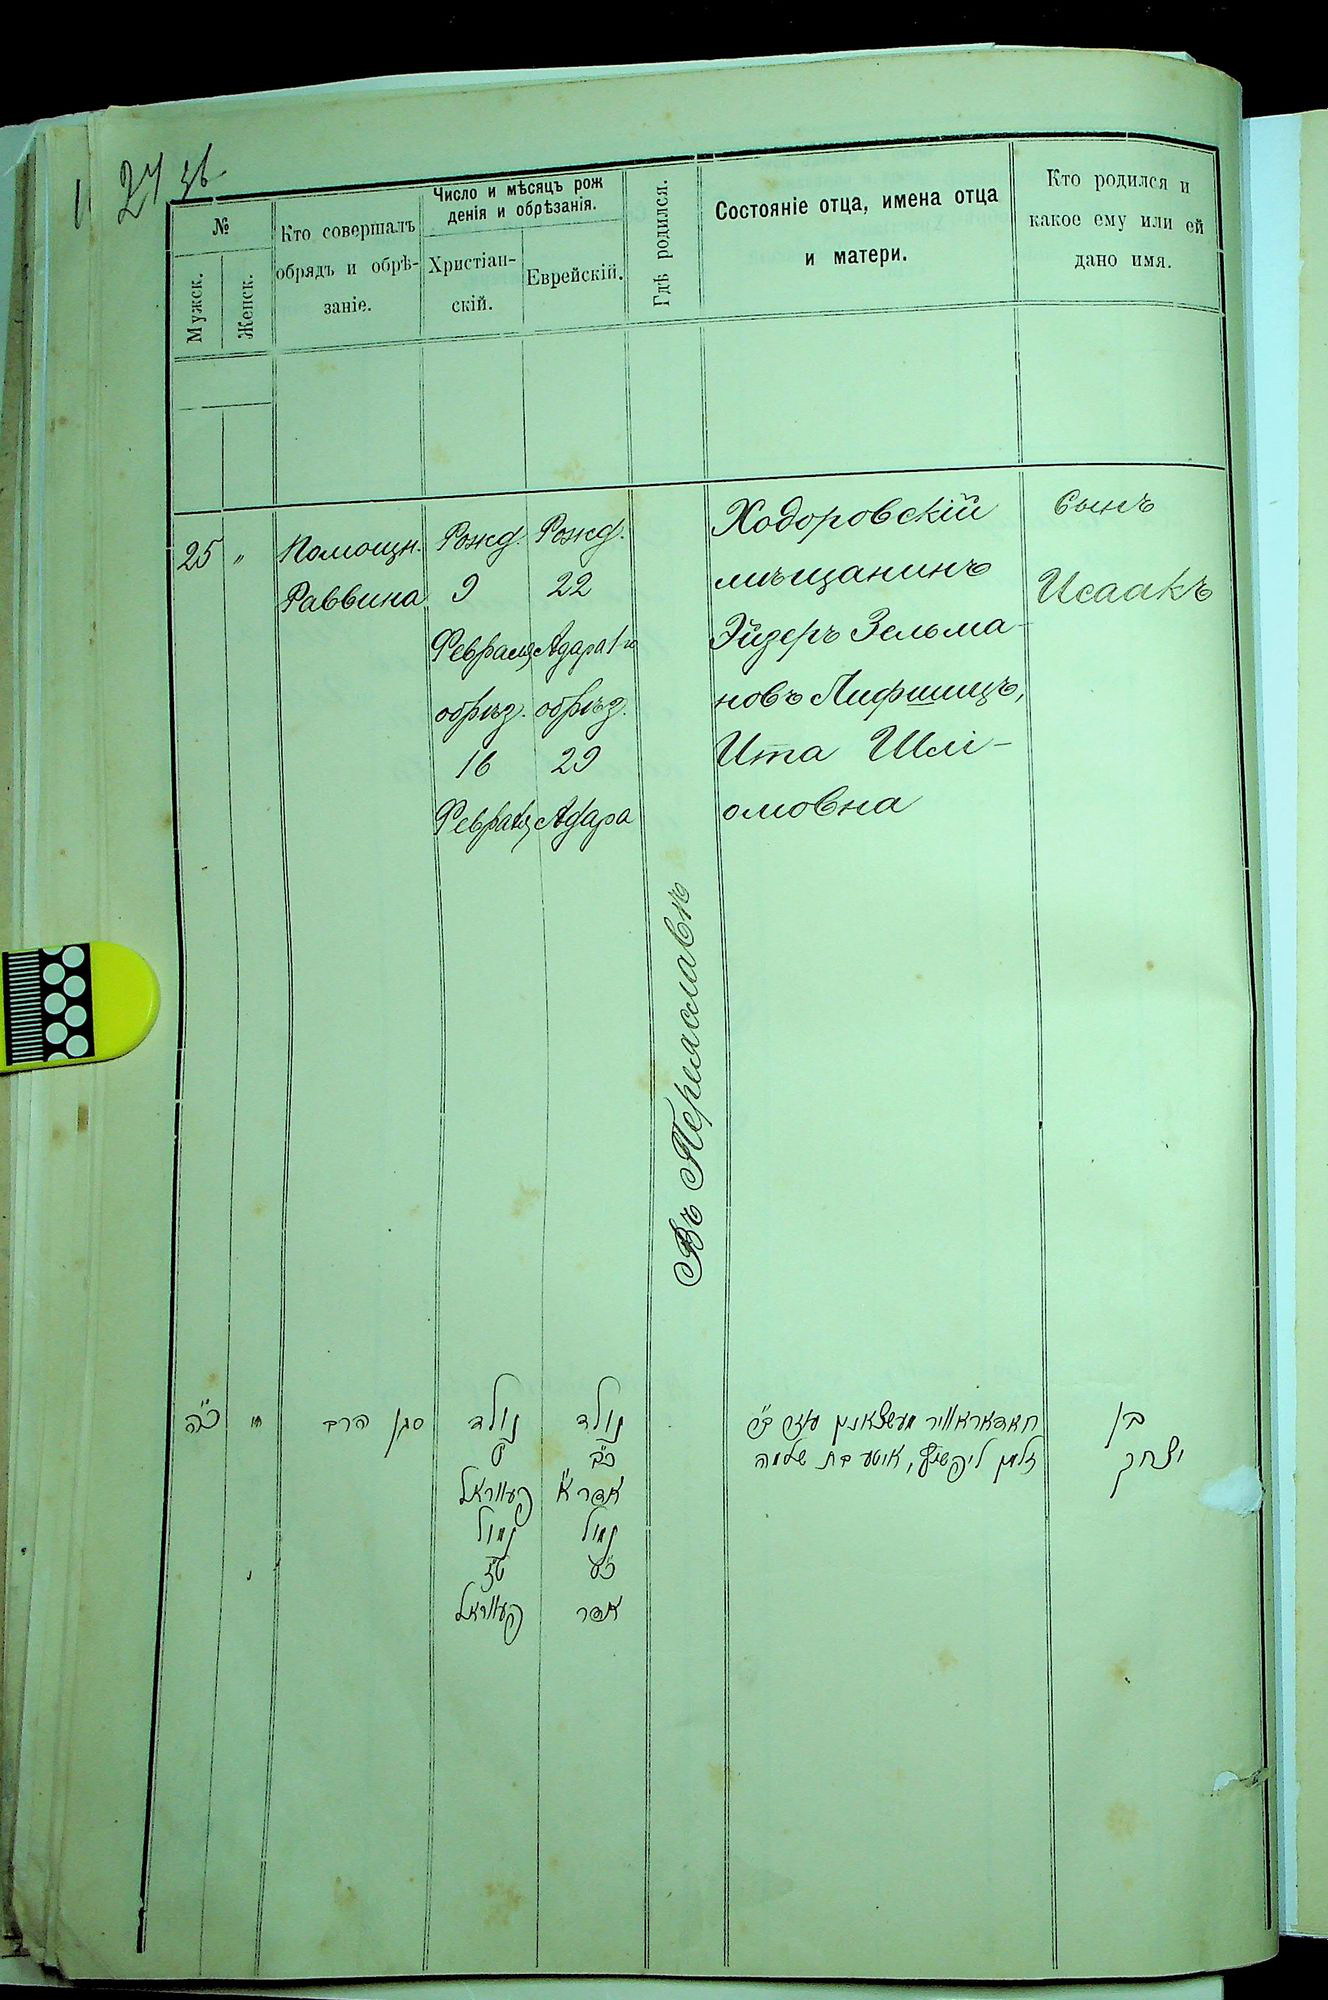 27 зб.
№
Мужск.
Женск.
Кто совершалъ
обрядъ и обрѣ-
заніе.
Число и мѣсяцъ рож
денія и обрѣзанія.
Христіан-
скій.
Еврейскій.
Гдѣ родился.
Состояніе отца, имена отца
и матери.
Кто родился и
какое ему или ей
дано имя.
25
"
Помощн.
Раввина
Рожд.
9
Февраля
обрѣз.
16
Февраля
Рожд.
22
Адара 1-го
обрѣз.
29
Адара
Въ Переяславѣ
Ходоровскій
мѣщанинъ
Эйзеръ Зельма-
новъ Лифшицъ,
Ита Шлі-
омовна
Сынъ
Исаакъ
כ"ה
"
סגן הרב
נולד
ט'
פעווראל
נמול
ט"ז
פעווראל
נולד
כ"ב
אדר א'
נמול
כ"ט
אדר
חאדאראוויר מעשצאנין
זלמן ליפשיץ, איטע בת שלמה
בן
יצחק